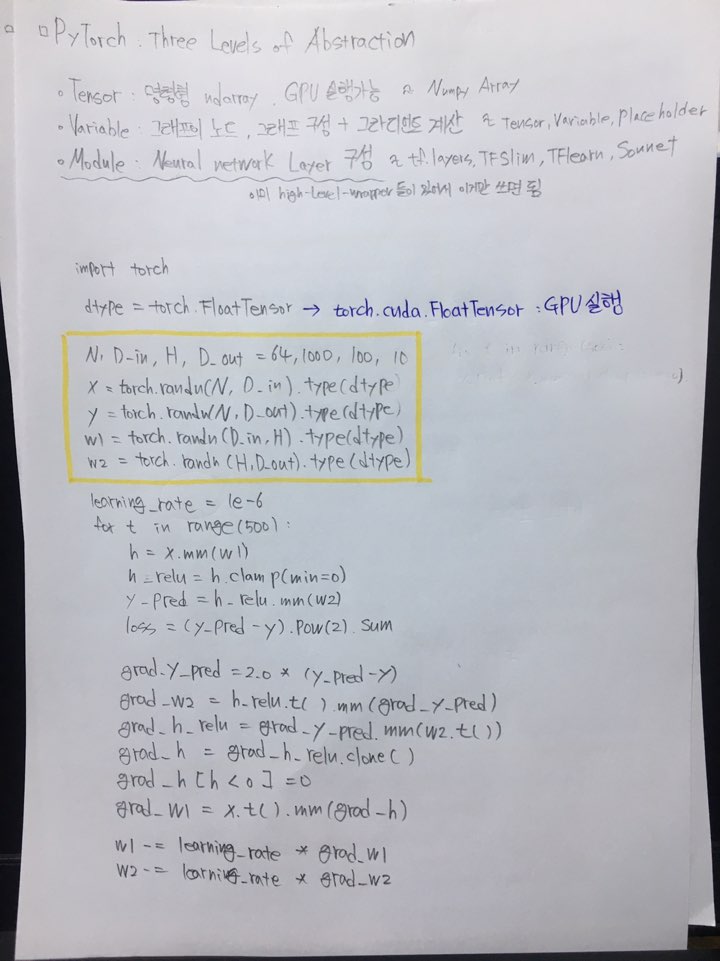 PyTorch : Three Levels of Abstraction
Tensor : 명령형 ndarray, GPU 실행가능 ≈ Numpy Array
Variable : 그래프의 노드, 그래프 구성 + 그라디언트 계산 ≈ Tensor, Variable, Placeholder
Module : Neural network Layer 구성 ≈ tf.layers, TFSlim, TFlearn, Sonnet
이미 high-Level-wrapper 들이 있어서 이거만 쓰면 됨
import torch
dtype = torch.FloatTensor → torch.cuda.FloatTensor : GPU 실행
N, D_in, H, D_out = 64, 1000, 100, 10
x = torch.randn(N, D_in).type(dtype)
y = torch.randn(N, D_out).type(dtype)
w1 = torch.randn(D_in, H).type(dtype)
w2 = torch.randn(H, D_out).type(dtype)
learning_rate = 1e-6
for t in range(500):
h = x.mm(w1)
h_relu = h.clamp(min=0)
y_pred = h_relu.mm(w2)
loss = (y_pred-y).pow(2).sum
grad_y_pred = 2.0 * (y_pred-y)
grad_w2 = h_relu.t().mm(grad_y_pred)
grad_h_relu = grad_y_pred.mm(w2.t())
grad_h = grad_h_relu.clone()
grad_h[h<0] = 0
grad_w1 = x.t().mm(grad_h)
w1 -= learning_rate * grad_w1
w2 -= learning_rate * grad_w2